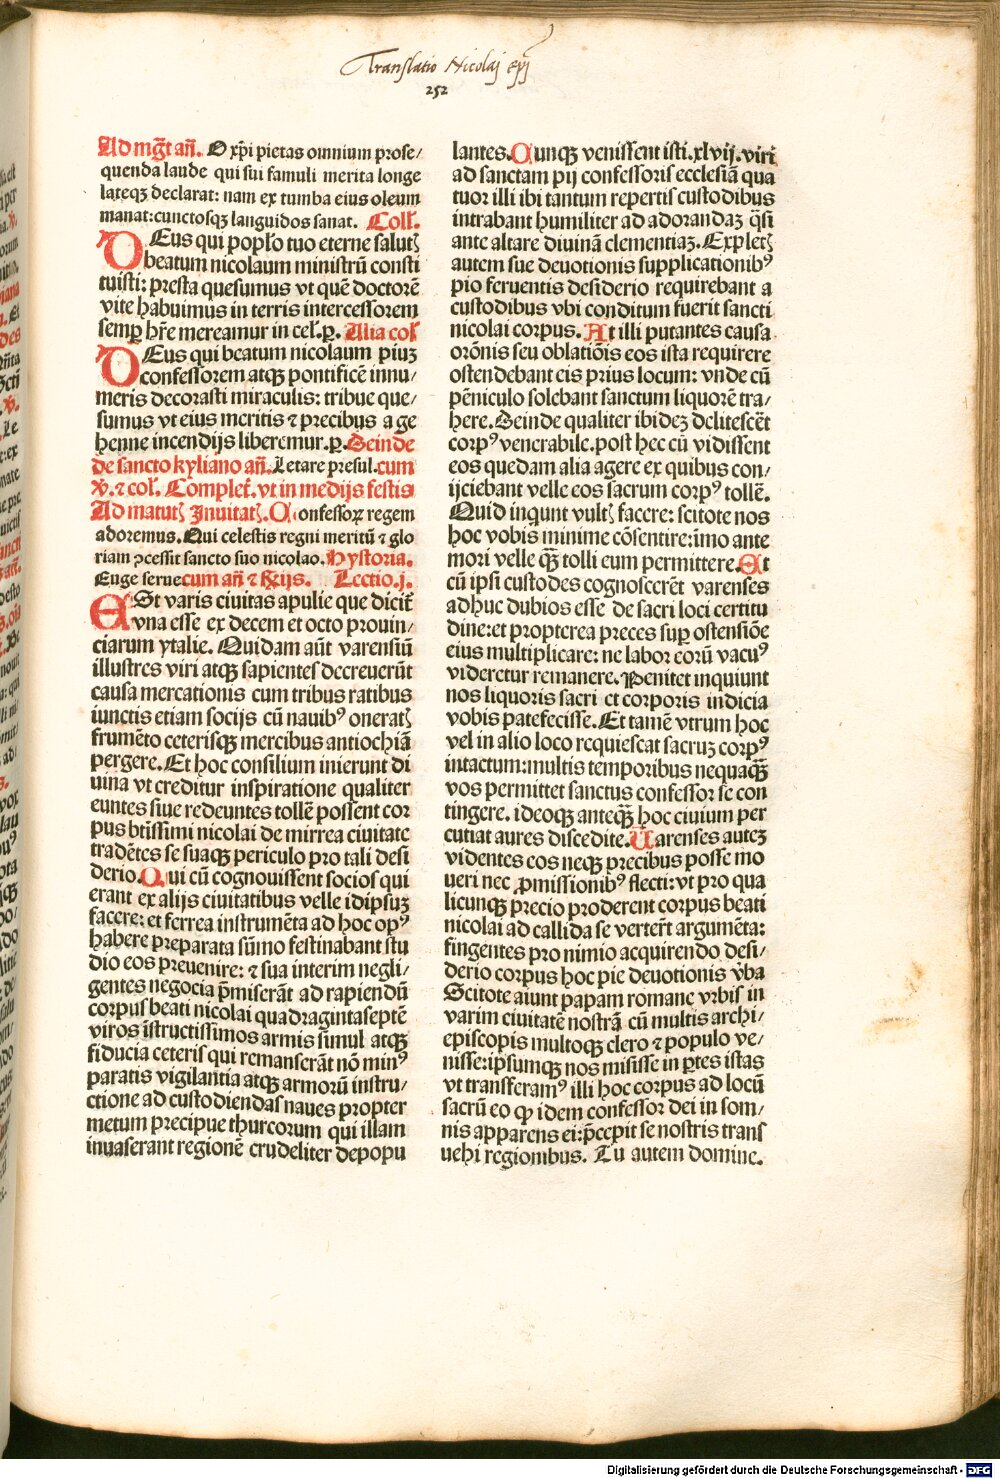 Translatio Nicolaj epj
252
Ad mg̃t añ. O xp̃i pietas omnium prose/
quenda laude qui sui famuli merita longe
lateqꝫ declarat: nam ex tumba eius oleum
manat: cunctosqꝫ languidos sanat. Coll̃.
DEus qui pop̃lo tuo eterne salutꝭ
beatum nicolaum ministrũ consti
tuisti: presta quesumus vt quẽ doctorẽ
vite habuimus in terris intercessorem
semꝑ hr̃e mereamur in cel̃.ꝑ. Alia col̃
DEus qui beatum nicolaum piuꝫ
confessorem atqꝫ pontificẽ innu/
meris decorasti miraculis: tribue que/
sumus vt eius meritis ⁊ precibus a ge
henne incendijs liberemur.ꝑ. Deinde
de sancto kyliano añ. Letare presul. cum
V̾. ⁊ col̃. Complet̃. vt in medijs festis
Ad matutꝭ Inuitatꝭ. Confessoꝝ regem
adoremus. Qui celestis regni meritũ ⁊ glo
riam ꝯcessit sancto suo nicolao. Hystoria.
Euge serue cum añ ⁊ R̃ijs. Lectio.j.
ESt varis ciuitas apulie que dicit̃
vna esse ex decem et octo prouin/
ciarum ytalie. Quidam aũt varensiũ
illustres viri atqꝫ sapientes decreuerũt
causa mercationis cum tribus ratibus
iunctis etiam socijs cũ nauibꝰ oneratꝭ
frumẽto ceterisqꝫ mercibus antiochiã
pergere. Et hoc consilium inierunt di
uina vt creditur inspiratione qualiter
euntes siue redeuntes tollẽ possent cor
pus btĩssimi nicolai de mirrea ciuitate
tradẽtes se suaqꝫ periculo pro tali desi
derio. Qui cũ cognouissent socios qui
erant ex alijs ciuitatibus velle idipsuꝫ
facere: et ferrea instrumẽta ad hoc opꝰ
habere preparata sũmo festinabant stu
dio eos preuenire: ⁊ sua interim negli/
gentes negocia p̃miserãt ad rapiendũ
corpus beati nicolai quadragintaseptẽ
viros ĩstructissimos armis simul atqꝫ
fiducia ceteris qui remanserãt nõ minꝰ
paratis vigilantia atqꝫ armorũ instru/
ctione ad custodiendas naues propter
metum precipue thurcorum qui illam
inuaserant regionẽ crudeliter depopu
lantes. Cunqꝫ venissent isti.xlvij.viri
ad sanctam pij confessoris ecclesiã qua
tuor illi ibi tantum repertis custodibus
intrabant humiliter ad adorandaꝫ q̃si
ante altare diuinã clementiaꝫ. Expletꝭ
autem sue deuotionis supplicationibꝰ
pio feruentis desiderio requirebant a
custodibus vbi conditum fuerit sancti
nicolai corpus. At illi putantes causa
orõnis seu oblatiõis eos ista requirere
ostendebant eis prius locum: vnde cũ
pẽniculo solebant sanctum liquorẽ tra/
here. Deinde qualiter ibideꝫ delitescẽt
corpꝰ venerabile. post hec cũ vidissent
eos quedam alia agere ex quibus con/
ijciebant velle eos sacrum corpꝰ tollẽ.
Quid inqunt vultꝭ facere: scitote nos
hoc vobis minime cõsentire: imo ante
mori velle q̃ꝫ tolli eum permittere. Et
cũ ipsi custodes cognoscerẽt varenses
adhuc dubios esse de sacri loci certitu
dine: et propterea preces suꝑ ostensiõe
eius multiplicare: ne labor eorũ vacuꝰ
videretur remanere. Penitet inquiunt
nos liquoris sacri et corporis indicia
vobis patefecisse. Et tamẽ vtrum hoc
vel in alio loco requiescat sacruꝫ corpꝰ
intactum: multis temporibus nequaq̃ꝫ
vos permittet sanctus confessor se con
tingere. ideoqꝫ anteq̃ꝫ hoc ciuium per
cutiat aures discedite. Uarenses auteꝫ
videntes eos neqꝫ precibus posse mo
ueri nec ꝓmissionibꝰ flecti: vt pro qua
licunqꝫ precio proderent corpus beati
nicolai ad callida se verter̃t argumẽta:
fingentes pro nimio acquirendo desi/
derio corpus hoc pie deuotionis v̾ba
Scitote aiunt papam romane vrbis in
varim ciuitatẽ nostrã cũ multis archi/
episcopis multoqꝫ clero ⁊ populo ve/
nisse: ipsumqꝫ nos misisse in ꝑtes istas
vt transferamꝰ illi hoc corpus ad locũ
sacrũ eo ꝙ idem confessor dei in som/
nis apparens ei: p̃cepit se nostris trans
uehi regionibus. Tu autem domine.
Digitalisierung gefördert durch die Deutsche Forschungsgemeinschaft - DFG